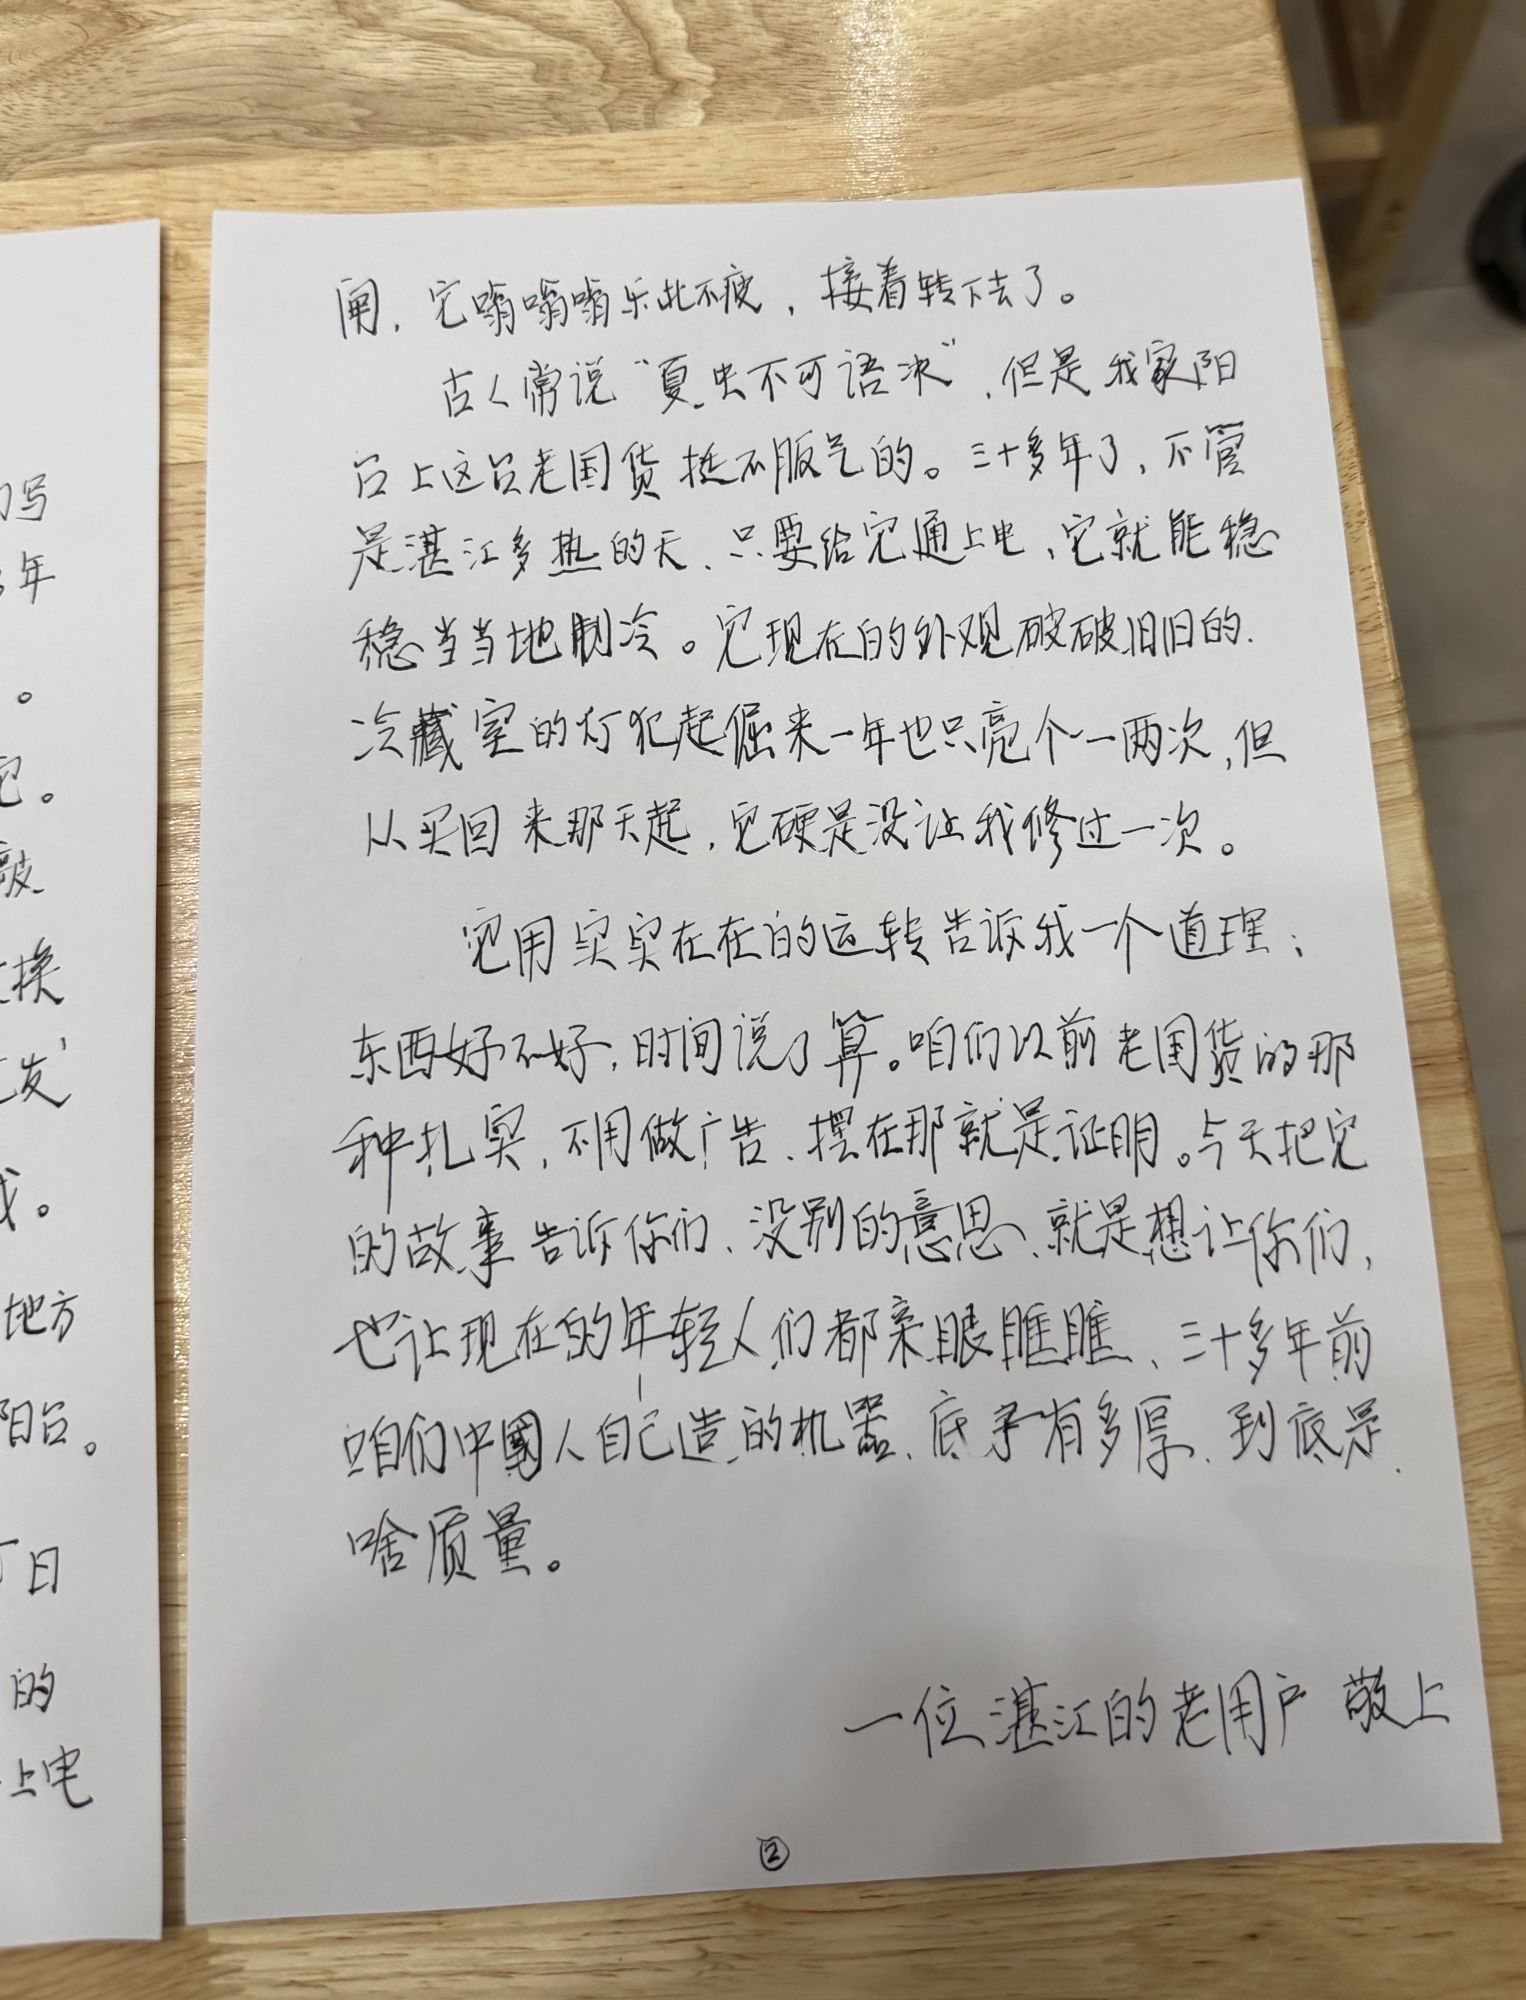 闸，它嗡嗡嗡乐此不疲，接着转下去了。
古人常说“夏虫不可语冰”，但是我家阳
台上这台老国货挺不服气的。三十多年了，不管
是湛江多热的天、只要给它通上电，它就能稳
稳当当地制冷。它现在的外观破破旧旧的.
冷藏室的灯犯起倔来一年也只亮个一两次，但
从买回来那天起，它硬是没让我修过一次。
它用实实在在的运转告诉我一个道理：
东西好不好，时间说了算。咱们以前老国货的那
种扎实，不用做广告、摆在那就是证明。今天把它
的故事告诉你们、没别的意思、就是想让你们，
也让现在的年轻人们都亲眼瞧瞧、三十多年前
咱们中國人自己造的机器、底子有多厚、到底是
啥质量。
一位湛江的老用户 敬上
②
写
年
。
它。
敲
换
发
我。
地方
阳台。
日
的
上电